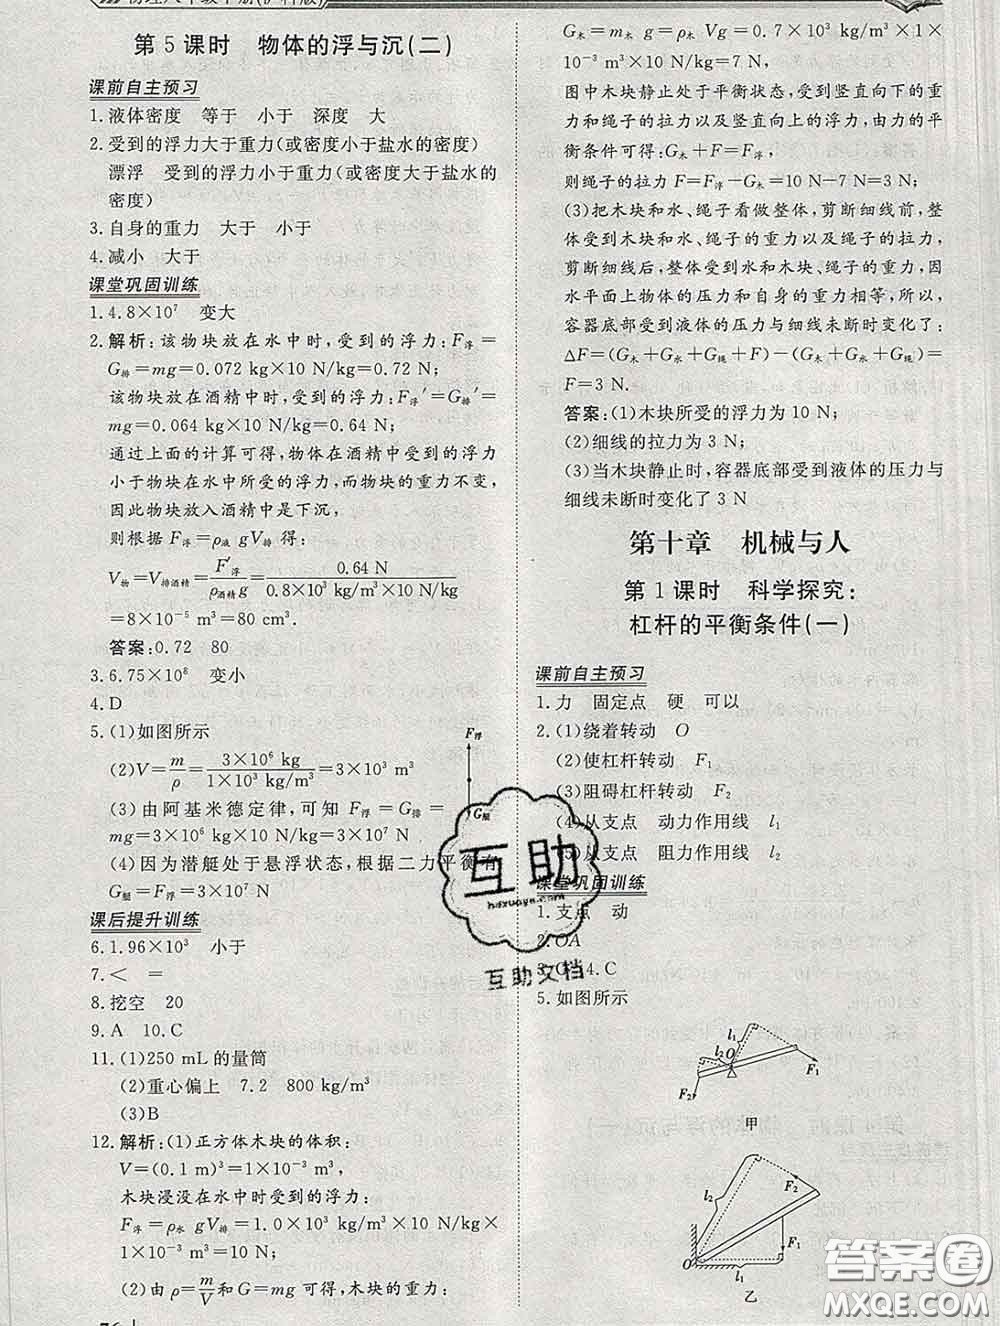 第5课时　物体的浮与沉(二)
课前自主预习
1.液体密度　等于　小于　深度　大
2.受到的浮力大于重力(或密度小于盐水的密度)
漂浮　受到的浮力小于重力(或密度大于盐水的
密度)
3.自身的重力　大于　小于
4.减小　大于
课堂巩固训练
1.4.8×10⁷　变大
2.解析:该物块放在水中时,受到的浮力:F浮=
G排=mg=0.072 kg×10 N/kg=0.72 N;
该物块放在酒精中时,受到的浮力:F浮′=G排′=
mg=0.064 kg×10 N/kg=0.64 N;
通过上面的计算可得,物体在酒精中所受的浮力
小于物块在水中所受的浮力,而物块的重力不变,
因此物块放入酒精中是下沉,
则根据 F浮=ρ液 gV排得:
V物=V排酒精=F′浮/ρ酒精g=0.64 N/0.8×10³ kg/m³×10 N/kg
=8×10⁻⁵ m³=80 cm³.
答案:0.72　80
3.6.75×10⁸　变小
4.D
5.(1)如图所示
F浮
G艇
(2)V=m/ρ=3×10⁶ kg/1×10³ kg/m³=3×10³ m³
(3)由阿基米德定律,可知 F浮=G排=
mg=3×10⁶ kg×10 N/kg=3×10⁷ N
(4)因为潜艇处于悬浮状态,根据二力平衡有
G艇=F浮=3×10⁷ N
课后提升训练
6.1.96×10³　小于
7.<　=
8.挖空　20
9.A　10.C
11.(1)250 mL的量筒
(2)重心偏上　7.2　800 kg/m³
(3)B
12.解析:(1)正方体木块的体积:
V=(0.1 m)³=1×10⁻³ m³
木块浸没在水中时受到的浮力:
F浮=ρ水 gV排=1.0×10³ kg/m³×10 N/kg×
1×10⁻³ m³=10 N;
(2)由 ρ=m/V和G=mg 可得,木块的重力:
G木=m木 g=ρ木 Vg=0.7×10³ kg/m³×1×
10⁻³ m³×10 N/kg=7 N,
图中木块静止处于平衡状态,受竖直向下的重
力和绳子的拉力以及竖直向上的浮力,由力的平
衡条件可得:G木+F=F浮,
则绳子的拉力 F=F浮-G木=10 N-7 N=3 N;
(3)把木块和水、绳子看做整体,剪断细线前,整
体受到木块和水、绳子的重力以及绳子的拉力,
剪断细线后,整体受到水和木块、绳子的重力,因
为水平面上物体的压力和自身的重力相等,所以,
容器底部受到液体的压力与细线未断时变化了:
ΔF=(G木+G水+G绳)-(G木+G水+G绳-F)
=F=3 N.
答案:(1)木块所受的浮力为 10 N;
(2)细线的拉力为 3 N;
(3)当木块静止时,容器底部受到液体的压力与
细线未断时变化了 3 N
第十章　机械与人
第1课时　科学探究:
杠杆的平衡条件(一)
课前自主预习
1.力　固定点　硬　可以
2.(1)绕着转动　O
(2)使杠杆转动　F₁
(3)阻碍杠杆转动　F₂
(4)从支点　动力作用线　l₁
(5)从支点　阻力作用线　l₂
课堂巩固训练
1.支点　动
2.OA
3.C　4.C
5.如图所示
l₁
l₂
O
F₁
F₂
甲
l₂
F₂
F₁
O
l₁
乙
互助
hdzuoye.com
互助文档
答案圈
MXQE.COM